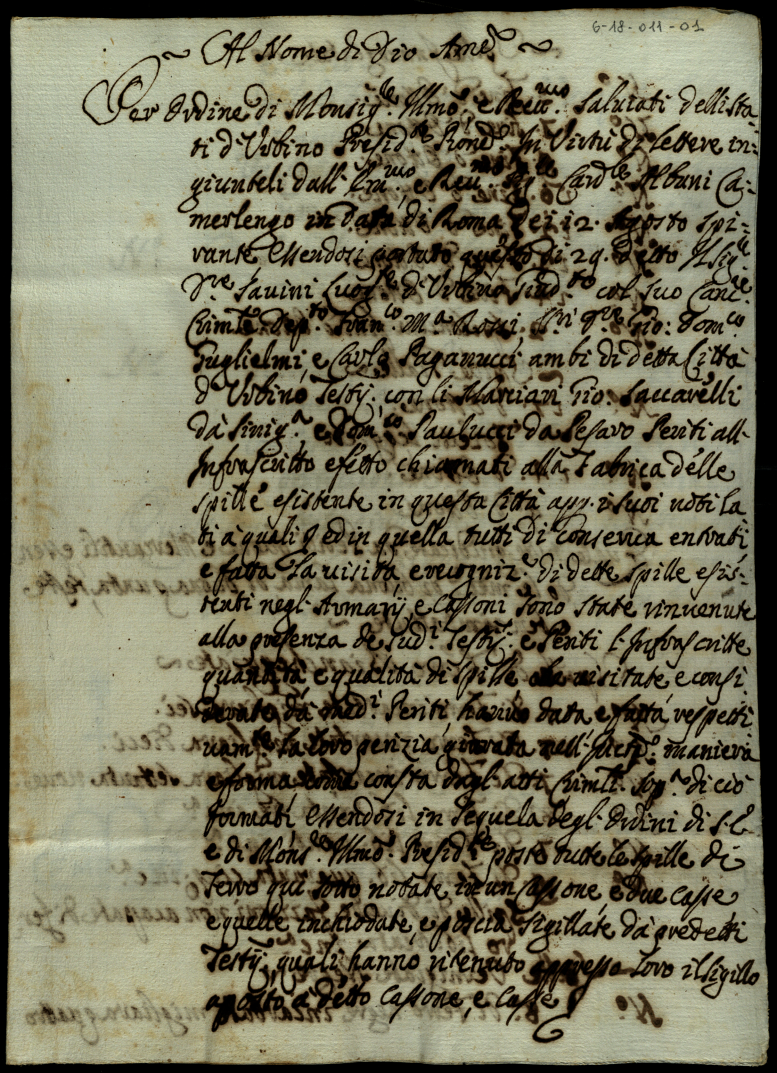 6-18-011-01
Al Nome di Dio Amē
Per Ordine di Monsig.re Illmo, e Revmo. Salviati dellista=
ti d'Urbino Presid.te Pione.. In Virtù di lettere in=
giunteli dall' Emo. e Rev.mo Sig.r Card.le Albani Ca=
merlengo in data di Roma dei 12. Agosto spi=
rante Essendosi portato questo dì 29. detto Il Sig.re
D.re Savini Luog.te d'Urbino Sud.to col suo Canc.re
Crimle. Dep.to Fran.co M.a Rossi. Gio: Dom.co
Guglielmi, e Carlo Paganucci ambi di detta Città
d'Urbino, Testij. con li Marciari Gio: Saccarelli
da Sinig.a e Dom.co Paulucci da Pesaro Periti all'
Infrascritto efetto chiamati alla Fabrica delle
spille esistente in questa Città app. i suoi noti la
ti a quali ed in quella tutti di Conserva entrati
e fatta la visita e recogniz.e di dette spille esis=
tenti negl' Armarij e Cassoni sono state rinvenute
alla presenza de sud.i Testij. e Periti l'Infrascritte
quantità e qualità di spille visitate e consi
derate da med.i Periti hanno data e fatta respetti
vam.te la loro perizia giurata nell' manierà
e forma come consta dagl' atti Crimli. sop.a di ciò
formati, Essendosi in sequela degl' Ordini di S. E.
e di Mons.re Illmo. Presid.te poste tutte le spille di
Ferro qui sotto notate in un Cassone, e due Casse
e quelle inchiodate, e poscia sigillate da predetti
Testij, quali hanno ritenuto appresso loro il sigillo
aposto a detto Cassone, e Casse